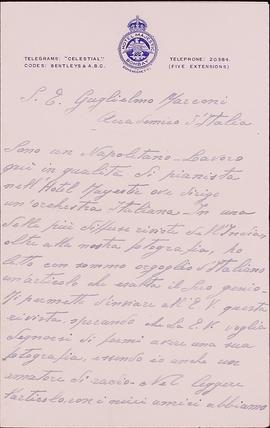 HOTEL MAJESTIC
BOMBAY
TELEGRAMS: "CELESTIAL"
CODES: BENTLEYS & A.B.C.
TELEPHONE: 20384.
(FIVE EXTENSIONS)
S. E. Guglielmo Marconi
Accademico d'Italia
Sono un Napoletano. Lavoro
quì in qualità di pianista
nell'Hotel Majestic ove dirigo
un'orchestra Italiana. In una
delle più diffuse riviste dell'India,
oltre alla nostra fotografia, ho
letto con sommo orgoglio d'Italiano
un'articolo che esalta il Suo genio.
Mi permetto d'inviare all'E. V. questa
rivista, sperando che la E. V. voglia
degnarsi di farmi avere una sua
fotografia, essendo io anche un
amatore di radio. Nel leggere
l'articolo, con i miei amici abbiamo